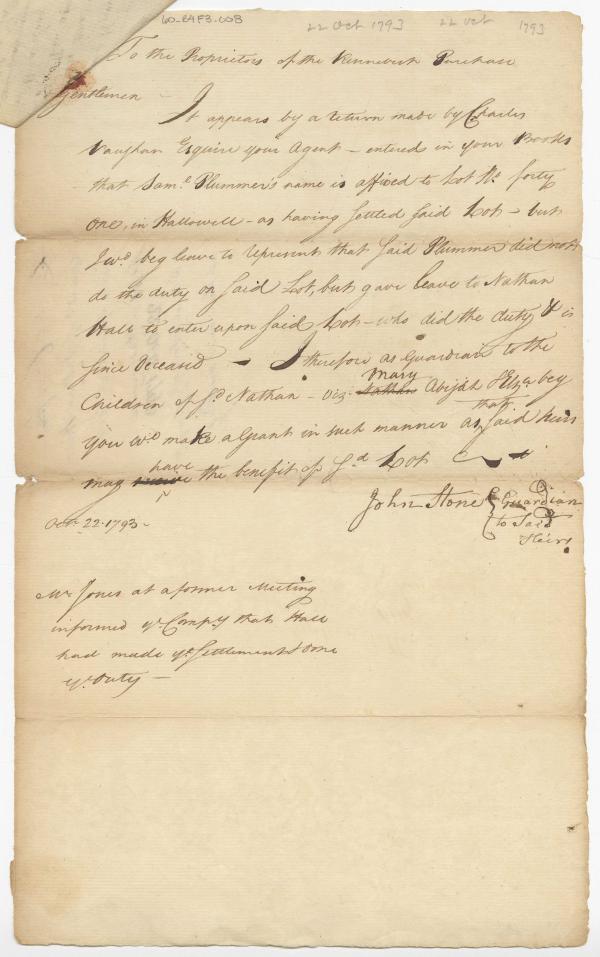 60-24F3-008 22 Oct 1793 22 Oct 1793
To the Proprietors of the Kennebeck Purchase
Gentlemen -
It appears by a return made by Charles
Vaughan Esquire your Agent - entered in your Books
that Saml. Plummer's name is affixed to Lot No. forty
one, in Hallowell - as having settled said Lot - but
I wd. beg leave to represent that said Plummer did not
do the duty on said Lot, but gave leave to Nathan
Hall to enter upon said Lot - who did the duty & is
since deceased - I therefore as Guardian to the
Mary
Children of sd. Nathan - viz: Nathan Abijah & Eliza beg
that
you wd. make a Grant in such manner as said heirs
have
may the benefit of sd Lot
John Stone Guardian
to Said
Heirs
Octr. 22. 1793 -
Mr Jones at a former Meeting
informed ye. Compy that Hall
had made ye. Settlement & done
ye. Duty -